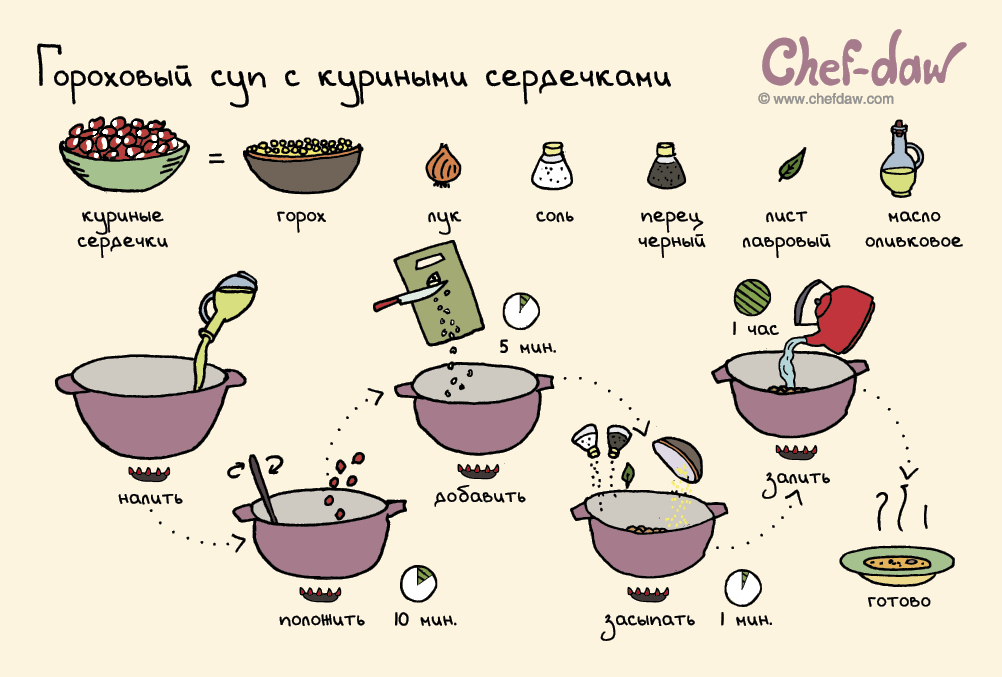 Гороховый суп с куриными сердечками
Chef-daw
© www.chefdaw.com
=
куриные
сердечки
горох
лук
соль
перец
черный
лист
лавровый
масло
оливковое
налить
положить
10 мин.
добавить
5 мин.
засыпать
1 мин.
залить
1 час
готово